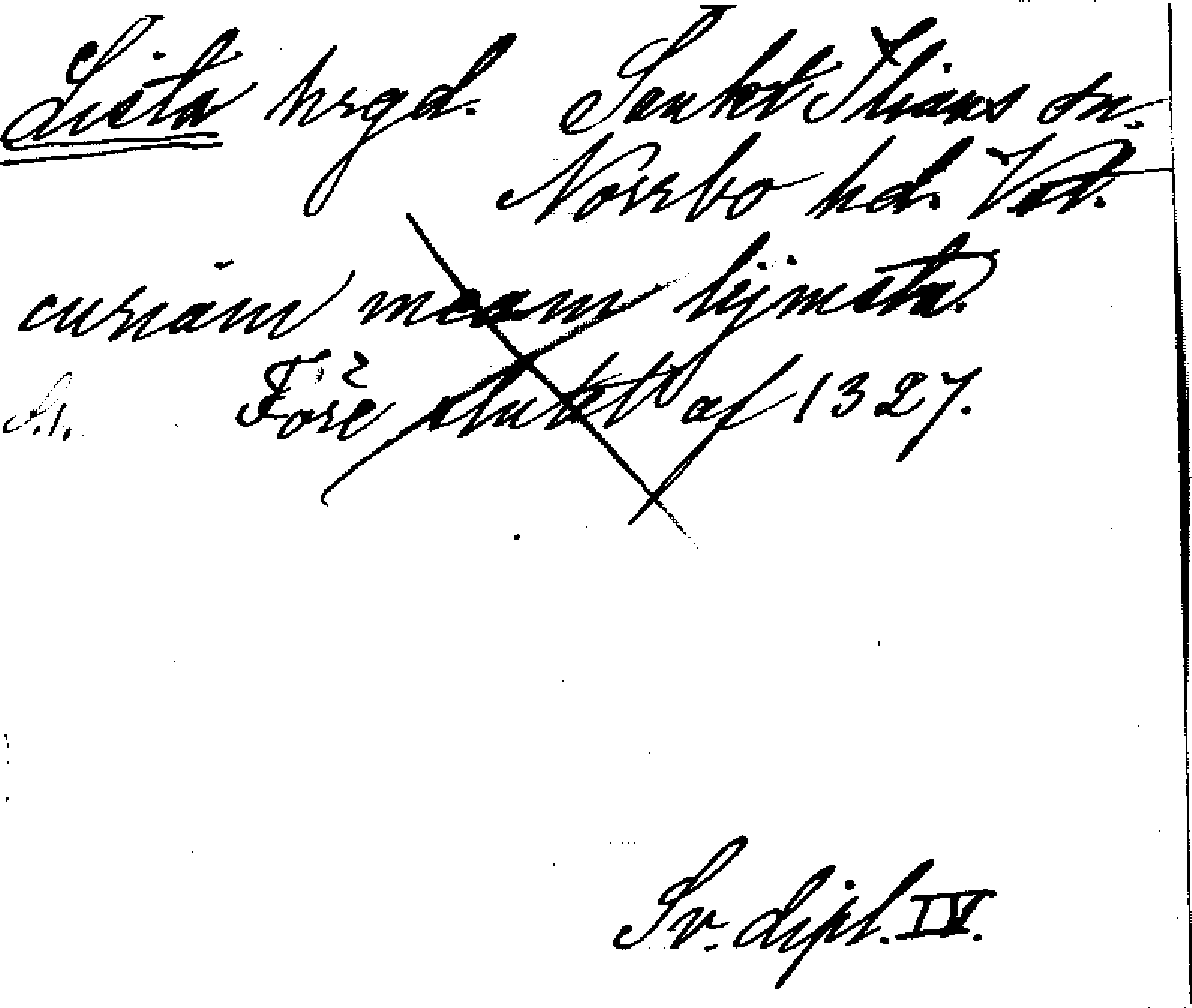 Lista hrgd. Sankt Ilians sn.
Norrbo hd. Vstl.
curiam meam lijmsta.
Före slutet af 1327.
Sv. dipl. IV.